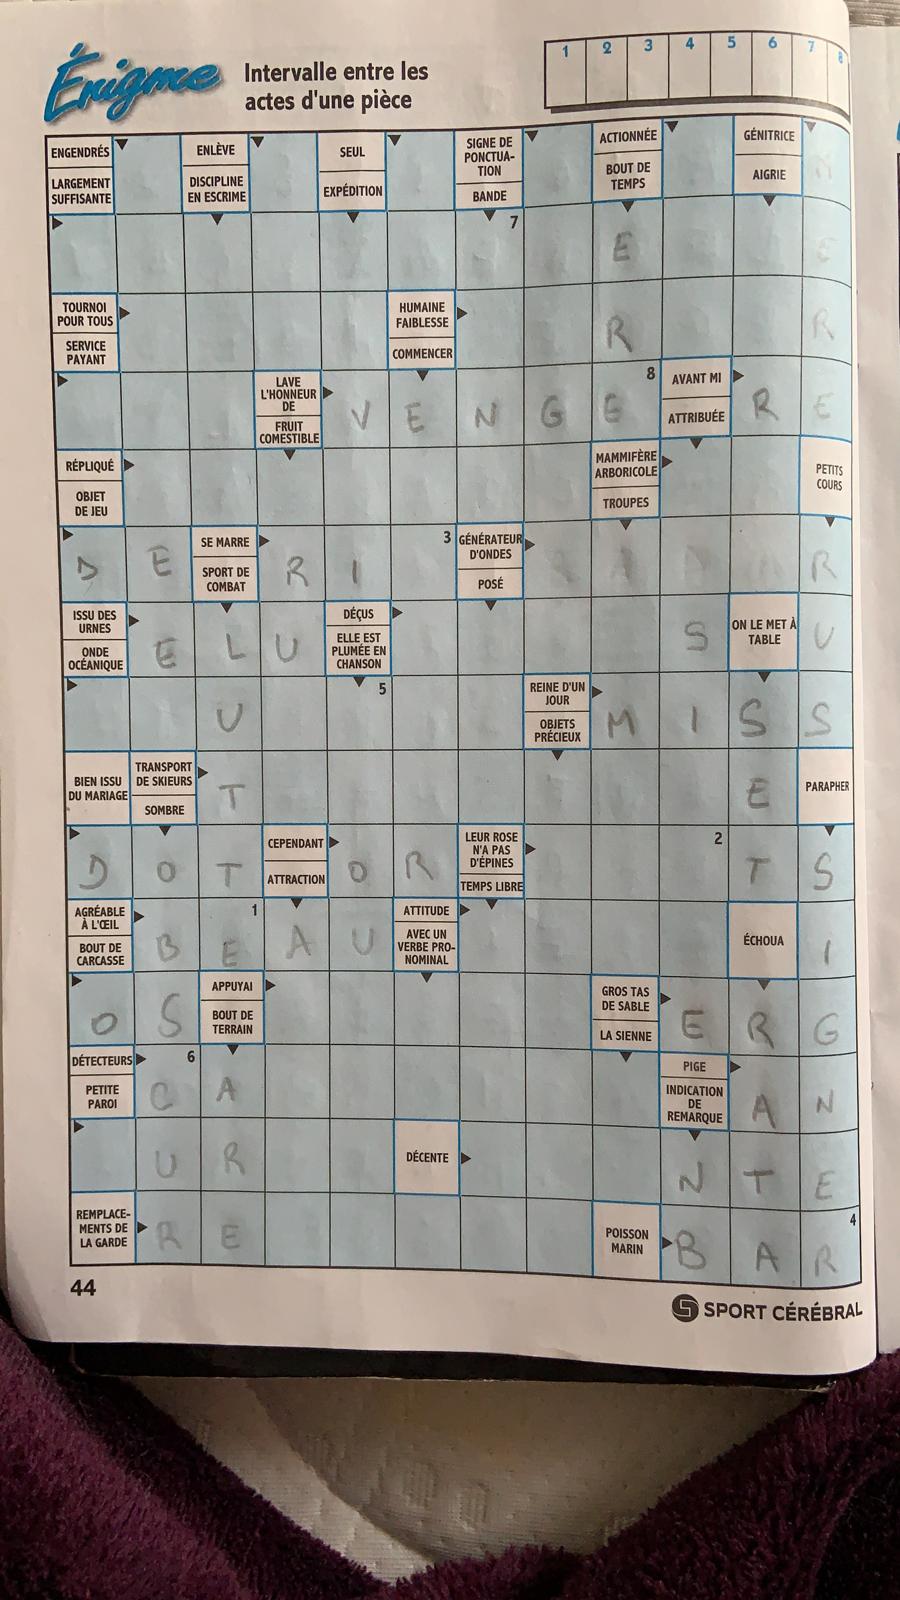 Énigme
Intervalle entre les
actes d'une pièce
1 2 3 4 5 6 7 8
ENGENDRÉS
LARGEMENT
SUFFISANTE
ENLÈVE
DISCIPLINE
EN ESCRIME
SEUL
EXPÉDITION
SIGNE DE
PONCTUA-
TION
BANDE
ACTIONNÉE
BOUT DE
TEMPS
GÉNITRICE
AIGRIE
M
7
E E
TOURNOI
POUR TOUS
SERVICE
PAYANT
HUMAINE
FAIBLESSE
COMMENCER
R R
LAVE
L'HONNEUR
DE
FRUIT
COMESTIBLE
V E N G E
8
AVANT MI
ATTRIBUÉE
R E
RÉPLIQUÉ
OBJET
DE JEU
MAMMIFÈRE
ARBORICOLE
TROUPES
PETITS
COURS
D E
SE MARRE
SPORT DE
COMBAT
R I
3
GÉNÉRATEUR
D'ONDES
POSÉ
A R
ISSU DES
URNES
ONDE
OCÉANIQUE
E L U
DÉÇUS
ELLE EST
PLUMÉE EN
CHANSON
S
ON LE MET À
TABLE
U
U
5
REINE D'UN
JOUR
OBJETS
PRÉCIEUX
M I S S
BIEN ISSU
DU MARIAGE
TRANSPORT
DE SKIEURS
SOMBRE
T
E
PARAPHER
D O T
CEPENDANT
ATTRACTION
O R
LEUR ROSE
N'A PAS
D'ÉPINES
TEMPS LIBRE
2
T S
AGRÉABLE
À L'ŒIL
BOUT DE
CARCASSE
B E A U
1
ATTITUDE
AVEC UN
VERBE PRO-
NOMINAL
ÉCHOUA
I
O S
APPUYAI
BOUT DE
TERRAIN
GROS TAS
DE SABLE
LA SIENNE
E R G
DÉTECTEURS
PETITE
PAROI
6
C A
PIGE
INDICATION
DE
REMARQUE
A N
U R
DÉCENTE
N T E
REMPLACE-
MENTS DE
LA GARDE
R E
POISSON
MARIN
B A R
4
44
SPORT CÉRÉBRAL